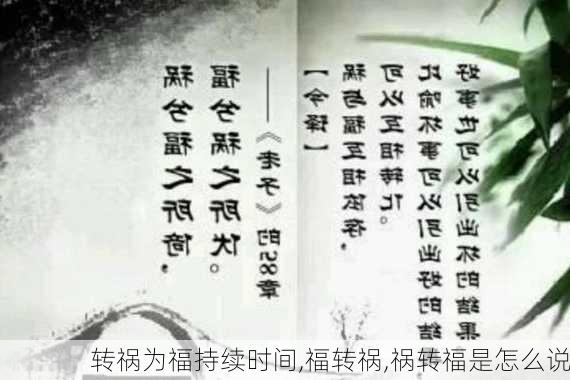 祸兮福之所倚,
福兮祸之所伏。
——《老子》的58章
【今译】
祸与福互相依存,
可以互相转化。
比喻坏事可以引出好的结
好事也可以引出坏的结果
转祸为福持续时间,福转祸,祸转福是怎么说